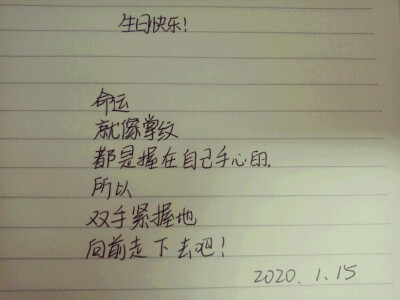 生日快乐!
命运
就像掌纹
都是握在自己手心的.
所以
双手紧握地
向前走下去吧!
2020.1.15